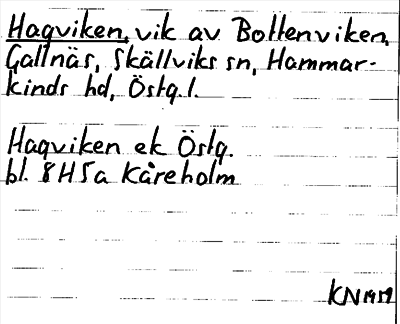 Hagviken, vik av Bottenviken,
Gallnäs, Skällviks sn, Hammar-
kinds hd, Östg.l.
Hagviken ek Östg.
bl. 8H5a Kåreholm